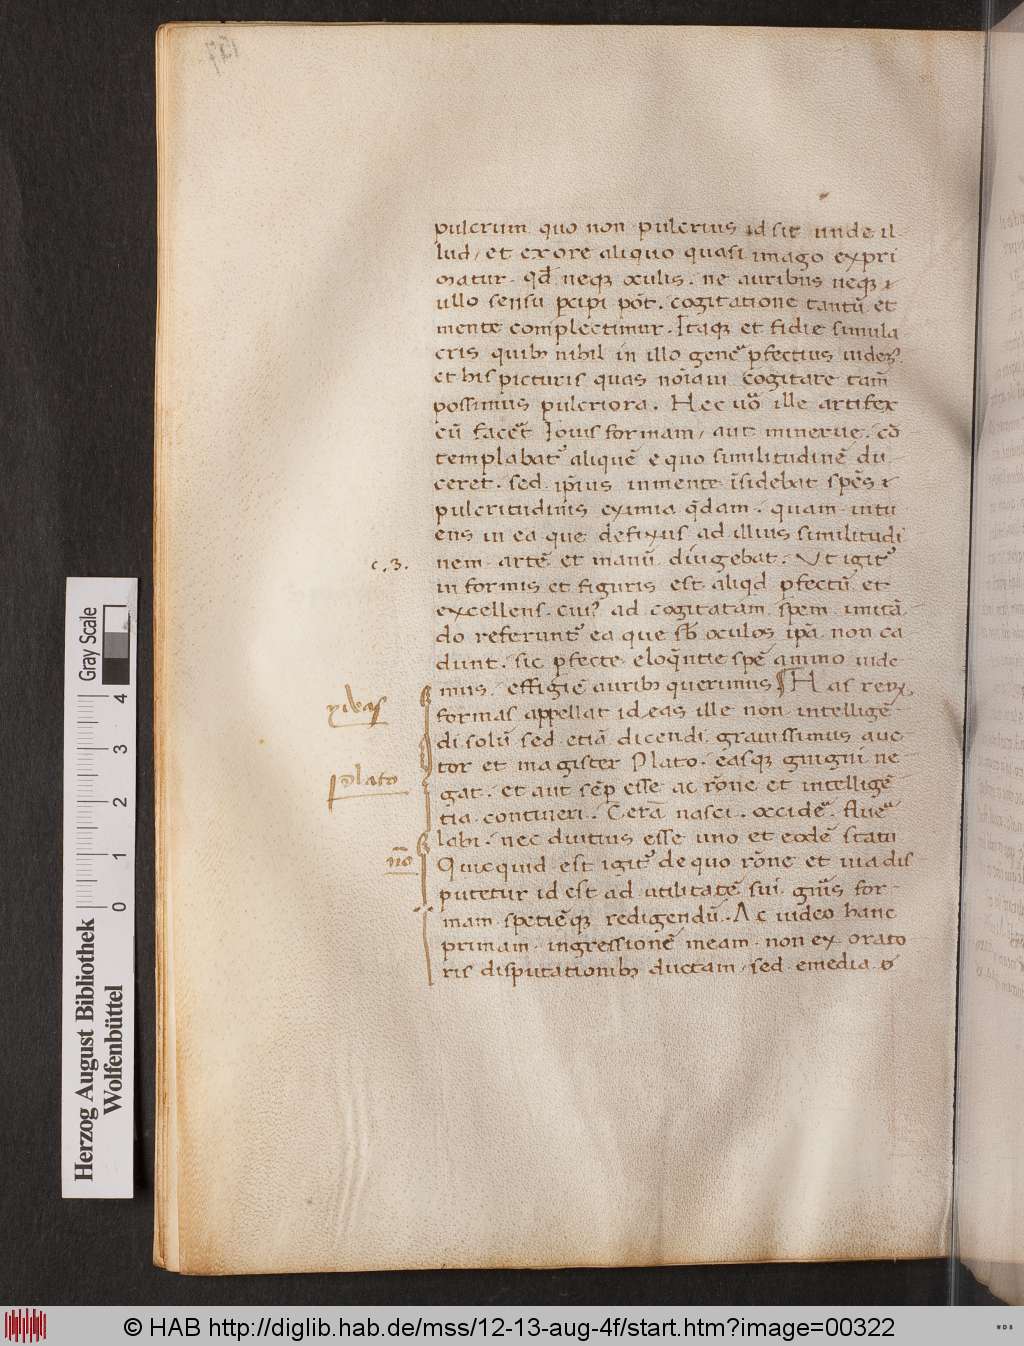 pulcrum quo non pulcrius id sit unde il-
lud, et ex ore aliquo quasi imago expri
matur. qd̄ neqꝫ oculis. ne auribus neqꝫ
ullo sensu ꝑcipi põt. cogitatione tantū et
mente complectimur. Itaqꝫ et fidie simula
cris quibꝫ nihil in illo gene ꝑfectius uidem
et his picturis quas noĩaui cogitare tam̄
possimus pulcriora. Hec uo ille artifex
cū facet Iouis formam, aut minerue. cō
templabat aliquē e quo similitudinē du
ceret. sed ipius in mente īsidebat spēs
pulcritudinis eximia qdam. quam intu
ens in ea que defixus ad illius similitudi
c. 3. nem artē et manū dirigebat. Ut igit
in formis et figuris est aliqd ꝑfectū et
excellens. cui ad cogitatam spem imitā
do referunt ea que sb oculos ipā non ca
dunt. sic ꝑfecte eloqntie spē animo uide
mus. effigiē auribꝫ querimus Has reꝝ
ydeas
formas appellat ideas ille non intelligē
di solū sed etiā dicendi grauissimus auc
tor et magister Plato. easqꝫ gingni ne
plato
gat. et aut sēp esse ac rōne et intelligē
tia contineri. Cetā nasci. occide flue
labi. nec diutius esse uno et eodē statu
nō
Quicquid est igit de quo rōne et uia dis
putetur id est ad utilitatē sui gnis for-
mam spetiēqꝫ redigendū. Ac uideo hanc
primam ingressionē meam non ex orato
ris disputationibꝫ ductam, sed e media
157
Herzog August Bibliothek
Wolfenbüttel
Gray Scale
0 1 2 3 4
© HAB http://diglib.hab.de/mss/12-13-aug-4f/start.htm?image=00322